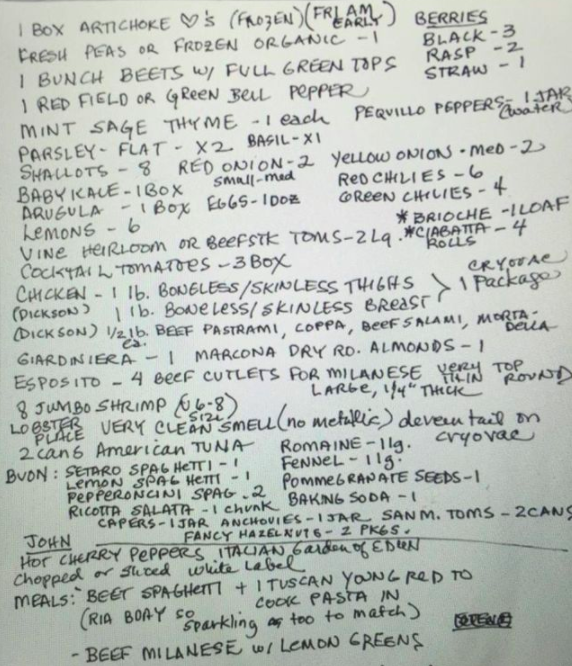 1 BOX ARTICHOKE ♡'s (FROZEN) (FRI AM EARLY)
BERRIES
FRESH PEAS OR FROZEN ORGANIC - 1
BLACK - 3
RASP - 2
STRAW - 1
1 BUNCH BEETS W/ FULL GREEN TOPS
1 RED FIELD OR GREEN BELL PEPPER
MINT SAGE THYME - 1 each
PEQUILLO PEPPERS - 1 JAR (water
PARSLEY - FLAT - X2 BASIL - X1
SHALLOTS - 8 RED ONION - 2 small-med
YELLOW ONION - MED - 2
BABY KALE - 1 BOX
RED CHILIES - 6
ARUGULA - 1 BOX EGGS - 1 DOZ
GREEN CHILIES - 4
LEMONS - 6
* BRIOCHE - 1 LOAF
VINE HEIRLOOM OR BEEFSTK TOMS - 2 Lg.
* CIABATTA - 4 ROLLS
COCKTAIL TOMATOES - 3 BOX
CHICKEN - 1 lb. BONELESS/SKINLESS THIGHS
CRYOVAC
1 Package
(DICKSON) 1 lb. BONELESS/SKINLESS BREAST
(DICKSON) 1/2 lb. ea. BEEF PASTRAMI, COPPA, BEEF SALAMI, MORTA-DELLA
GIARDINIERA - 1 MARCONA DRY RO. ALMONDS - 1
ESPOSITO - 4 BEEF CUTLETS FOR MILANESE VERY THIN TOP ROUND
LARGE, 1/4" THICK
8 JUMBO SHRIMP (U6-8) SIZE
LOBSTER PLACE VERY CLEAN SMELL (no metallic) devein tail on
cryovac
2 cans American TUNA
ROMAINE - 1 lg.
BUON: SETARO SPAGHETTI - 1
FENNEL - 1 lg.
LEMON SPAGHETTI - 1
POMMEGRANATE SEEDS - 1
PEPPERONCINI SPAG. 2
BAKING SODA - 1
RICOTTA SALATA - 1 chunk
CAPERS - 1 JAR ANCHOVIES - 1 JAR SAN M. TOMS - 2 CANS
FANCY HAZELNUTS - 2 PKGS.
JOHN
HOT CHERRY PEPPERS ITALIAN Garden of EDEN
Chopped or Sliced white Label
MEALS: BEET SPAGHETTI + 1 TUSCAN YOUNG RED TO
COOK PASTA IN
(RIA BDAY so
sparkling as too to match)
- BEEF MILANESE W/ LEMON GREENS